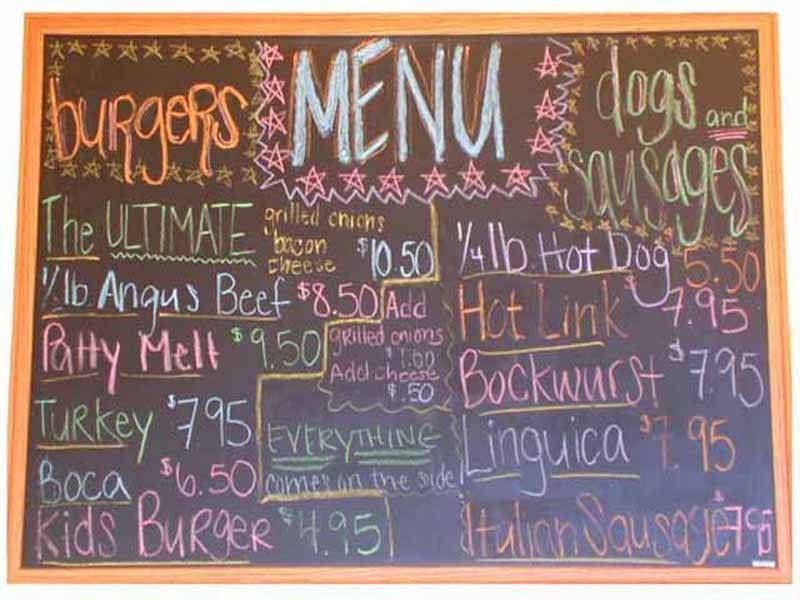 MENU
burgers
The ULTIMATE grilled onions bacon cheese $10.50
½ lb Angus Beef $8.50
Patty Melt $9.50
Turkey $7.95
Boca $6.50
Kids Burger $4.95
Add
grilled onions
$1.00
Add cheese
$.50
EVERYTHING
comes on the side
dogs and
sausages
¼ lb. Hot Dog $5.50
Hot Link $7.95
Bockwurst $7.95
Linguica $7.95
Italian Sausage $7.95